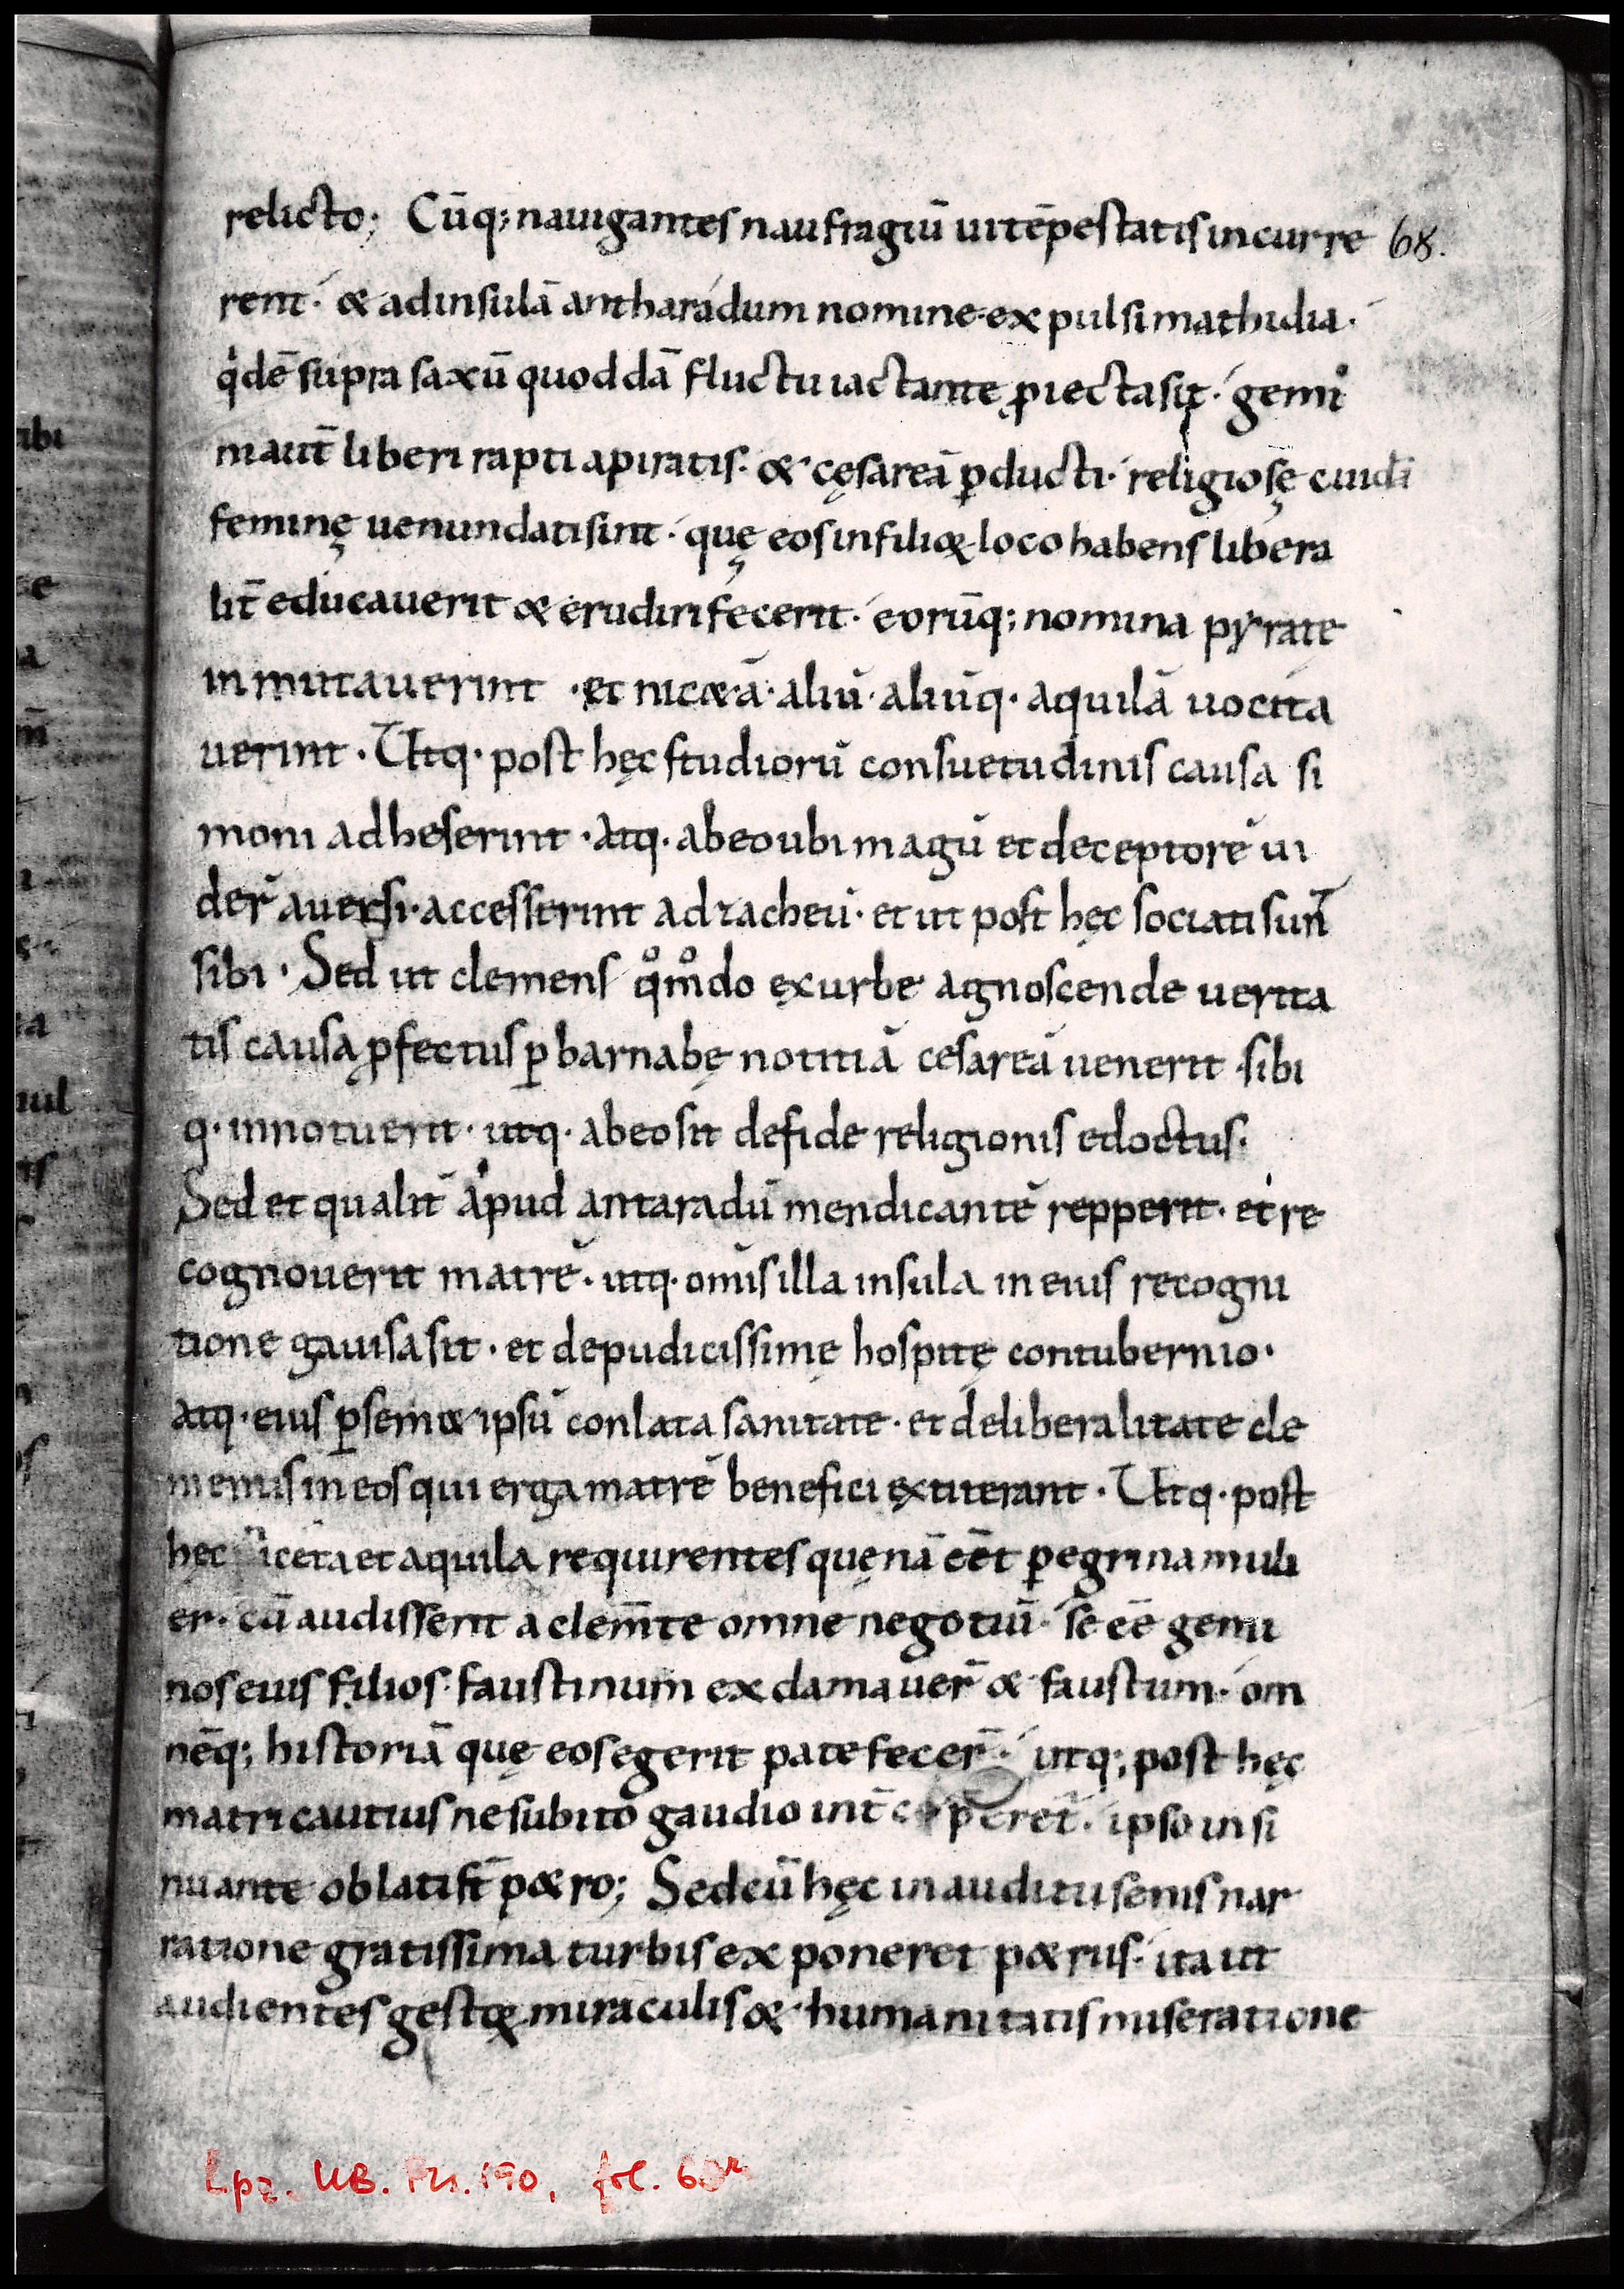 relicto; Cūq; nauigantes naufragiū ui tēpestatis incurre 68.
rent· & ad insulā antharadum nomine expulsi mathidia·
q̇dē supra saxū quoddā fluctu iactante ꝓiecta sit· gemi
ni aut̄ liberi rapti a piratis· & cęsareā ꝑducti· religiosę cuidā
feminę uenundati sint· quę eos in filioꝝ loco habens libera
lit̄ educauerit & erudiri fecerit· eorūq; nomina pyrate
inmutauerint · et nicetā· aliū· aliūq· aquilā uocita
uerint · Utq· post hęc studiorū consuetudinis causa si
moni adheserint · atq· ab eo ubi magū et deceptorē ui
der̄ auersi· accesserint ad zacheū· et ut post hęc sociati sun̄
sibi · Sed ut clemens q̊m̊do ex urbe agnoscende uerita
tis causa ꝓfectus ꝑ barnabę notitiā cesareā uenerit · sibi
q· innotuerit· utq· ab eo sit de fide religionis edoctus·
Sed et qualit̄ apud antaradū mendicantē repperit· et re
cognouerit matrē· utq· om̄is illa insula in eius recogni
tione gauisa sit · et de pudicissimę hospitę contubernio·
atq· eius ꝑ sem& ipsū conlata sanitate· et de liberalitate cle
mentis in eos qui erga matrē benefici extiterant · Utq· post
hęc niceta et aquila requirentes quęnā eēt ꝑegrina muli
er· cū audissent a clem̄te omne negotiū· se eē gemi
nos eius filios· faustinum exclamauer̄ & faustum· om
nēq; historiā quę eos egerit patefecer̄· utq; post hęc
matri cautius ne subito gaudio int̄ciperet̄· ipso insi
nuante oblati st̄ p&ro; Sed cū hęc in auditu senis nar
ratione gratissima turbis exponeret p&rus· ita ut
audientes gestoꝝ miraculis & humanitatis miseratione
Lpz. UB. Rep. 190, fol. 68r